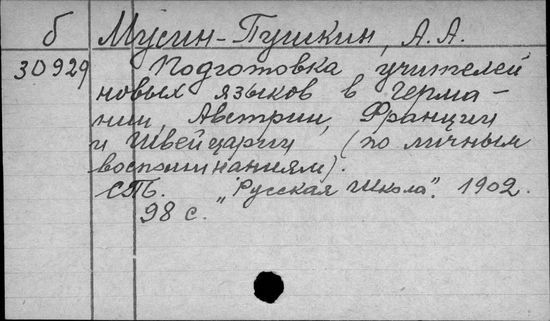 б Мусин-Пушкин, А.А.
30929 Подготовка учителей
новых языков в Герма-
нии, Австрии, Франции
и Швейцарии (по личным
воспоминаниям).
СПб. "Русская Школа". 1902.
98 с.